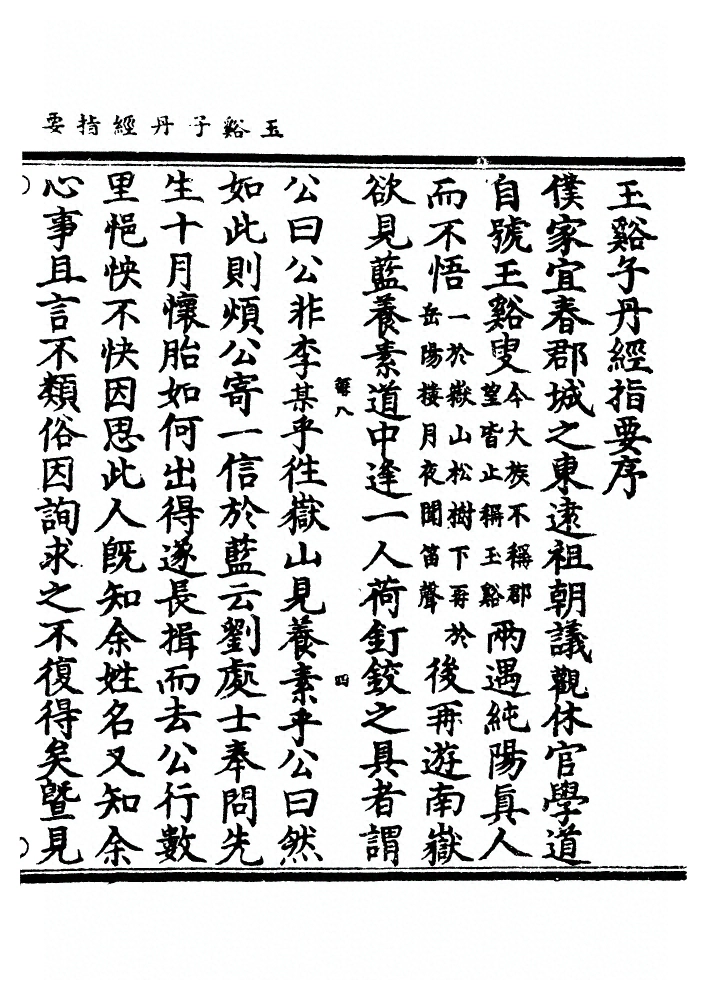 玉谿子丹經指要
玉谿子丹經指要序
僕家宜春郡城之東遠祖朝議觀休官學道
自號玉谿叟今大族不稱郡望皆止稱玉谿兩遇純陽眞人
而不悟一於嶽山松樹下再於岳陽樓月夜聞笛聲後再遊南嶽
欲見藍養素道中逢一人荷釘鉸之具者謂
四
公曰公非李某乎徃嶽山見養素乎公曰然
如此則煩公寄一信於藍云劉處士奉問先
生十月懷胎如何出得遂長揖而去公行數
里悒怏不快因思此人旣知余姓名又知余
心事且言不類俗因詢求之不復得矣曁見